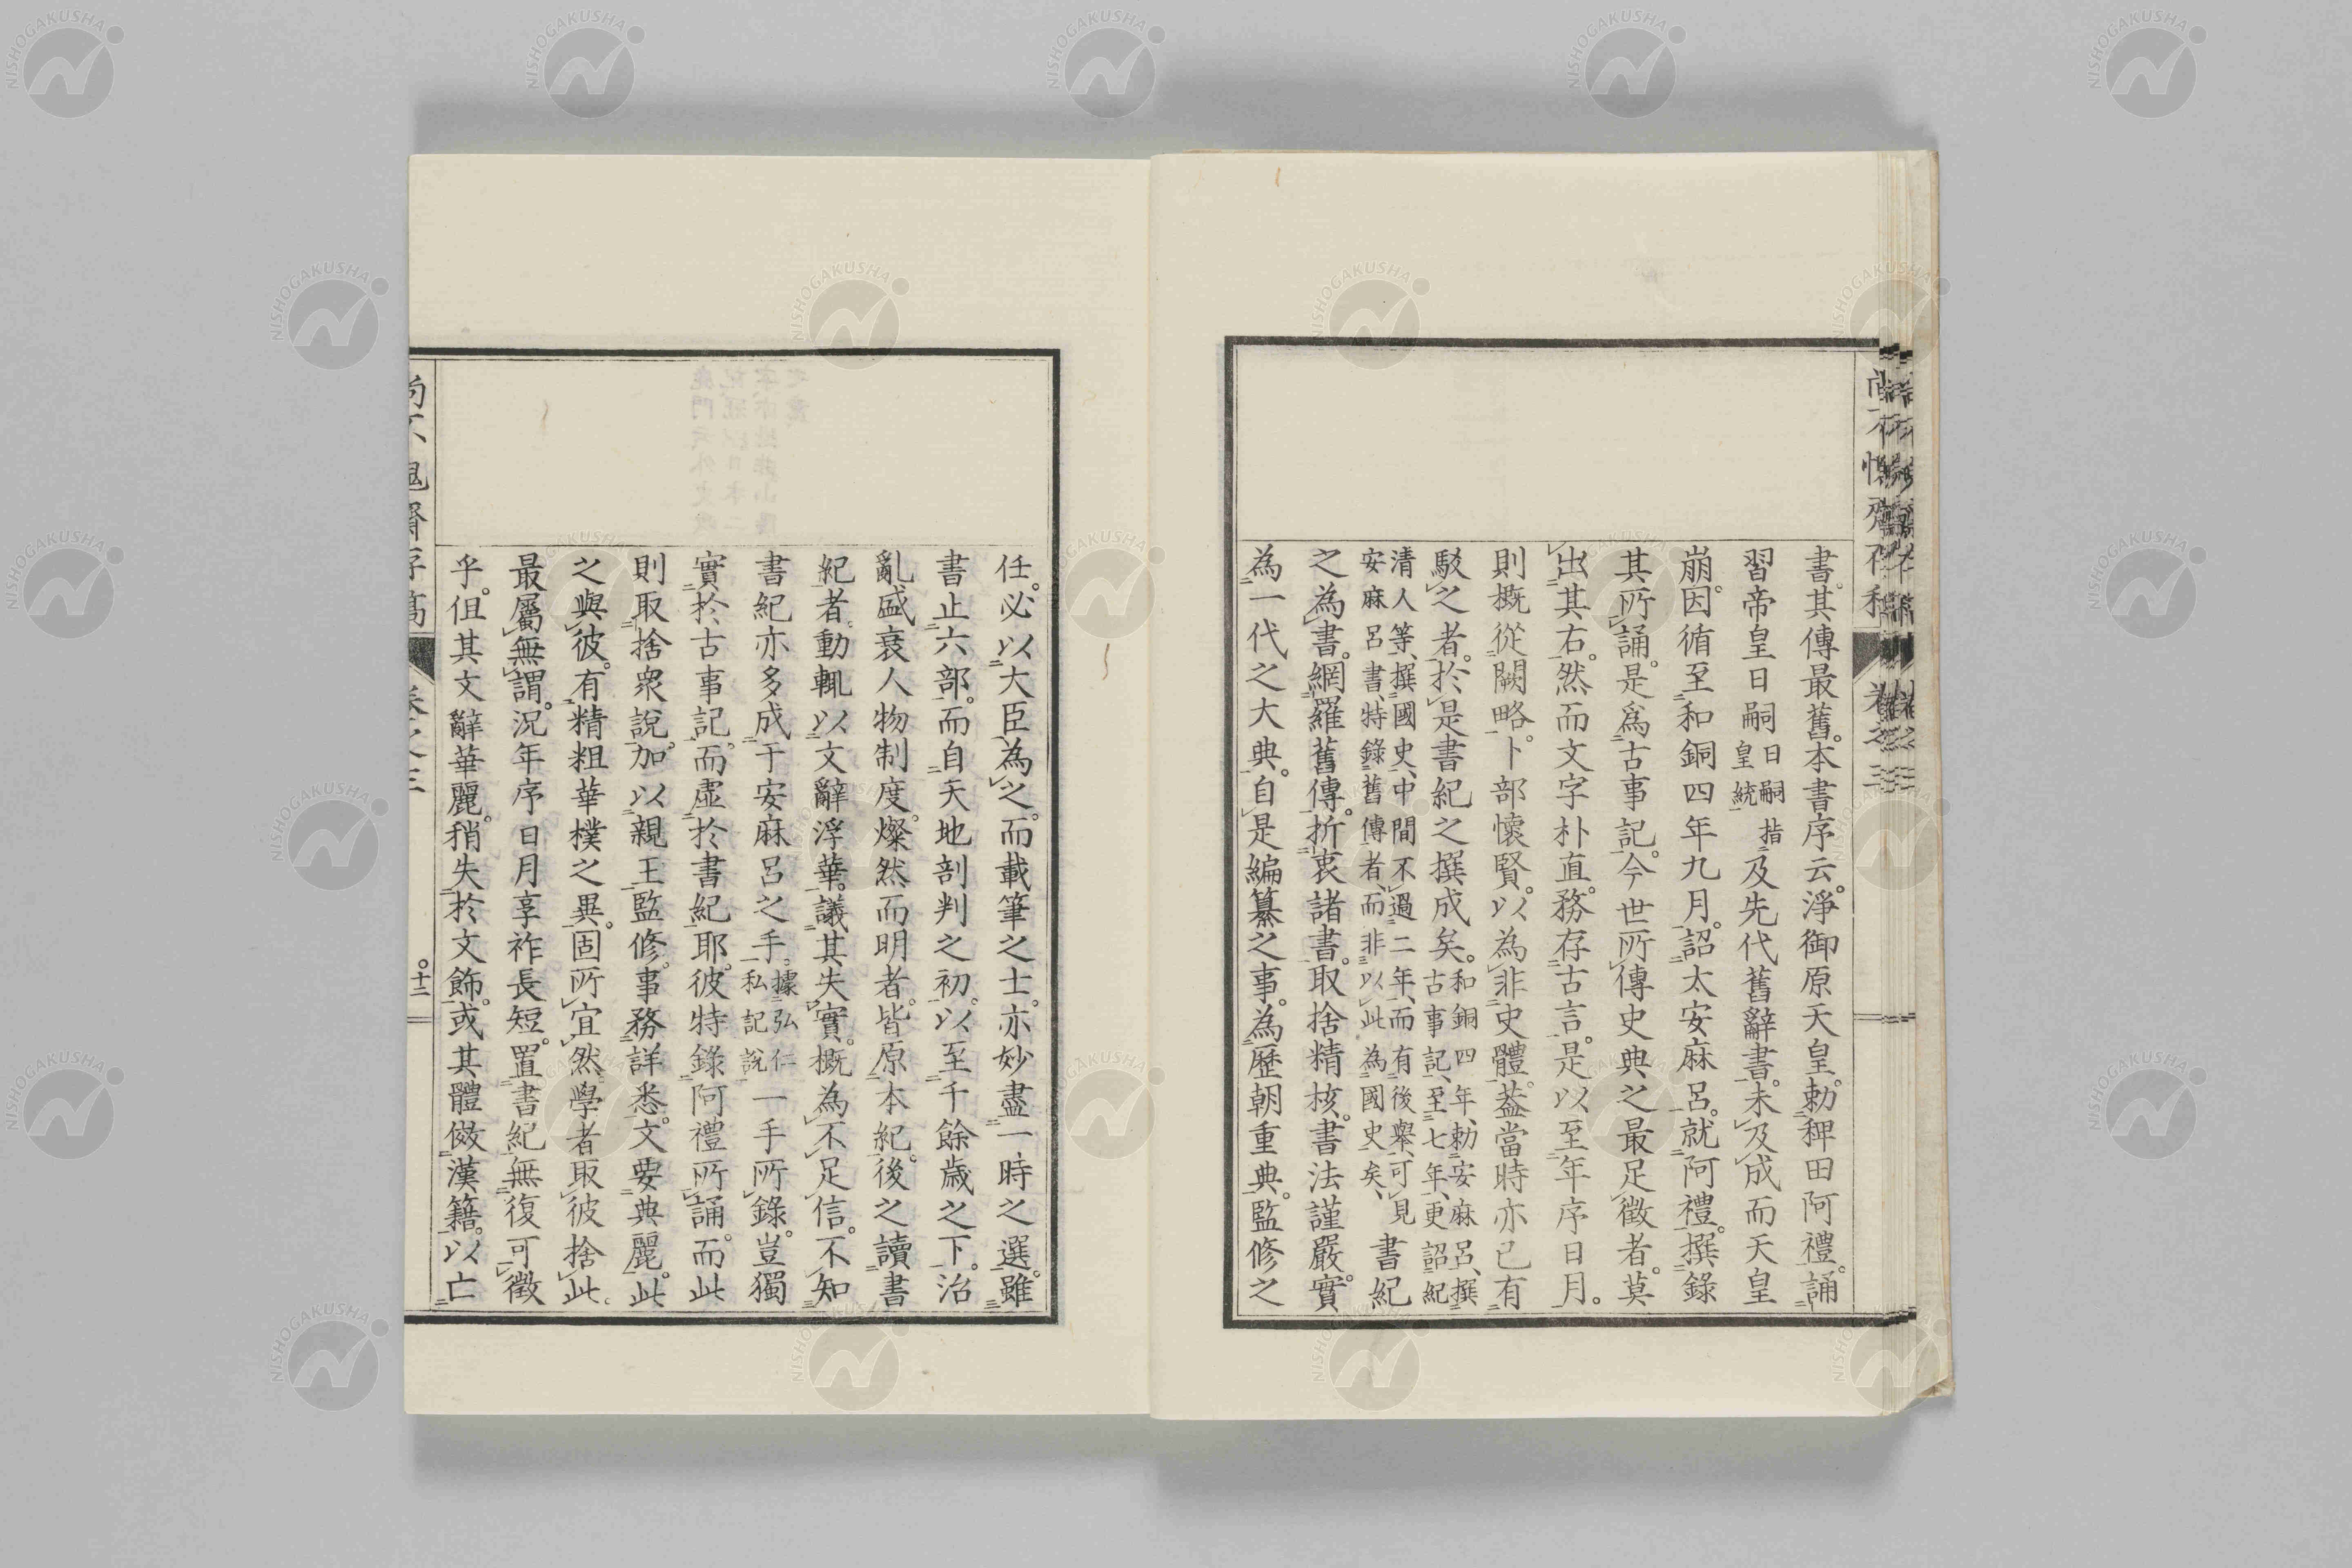 書。其傳最舊。本書序云。淨御原天皇。勅稗田阿禮。誦
習帝皇日嗣日嗣指皇統及先代舊辭書。未及成而天皇
崩。因循至和銅四年九月。詔太安麻呂。就阿禮。撰錄
其所誦。是爲古事記。今世所傳史典之最足徵者。莫
出其右。然而文字朴直。務存古言。是以至年序日月。
則概從闕略。卜部懷賢。以為非史體。葢當時亦已有
駁之者。於是書紀之撰成矣。和銅四年、勅安麻呂、撰古事記、至七年、更詔紀
清人等、撰國史、中間不過二年、而有後舉、可見安麻呂書、特錄舊傳者、而非以此為國史矣、書紀
之為書。網羅舊傳。折衷諸書。取捨精核。書法謹嚴。實
為一代之大典。自是編纂之事。為歷朝重典。監修之
任。必以大臣為之。而載筆之士。亦妙盡一時之選。雖
書止六部。而自天地剖判之初。以至千餘歲之下。治
亂盛衰人物制度。燦然而明者。皆原本紀。後之讀書
紀者。動輒以文辭浮華。議其失實。概為不足信。不知
書紀亦多成于安麻呂之手。據弘仁私記說一手所錄。豈獨
實於古事記。而虛於書紀耶。彼特錄阿禮所誦。而此
則取捨衆說。加以親王監修。事務詳悉。文要典麗。此
之與彼。有精粗華樸之異。固所宜然。學者取彼捨此。
最屬無謂。況年序日月享祚長短。置書紀無復可徵
乎。但其文辭華麗。稍失於文飾。或其體倣漢籍。以亡
齋存稿
十二